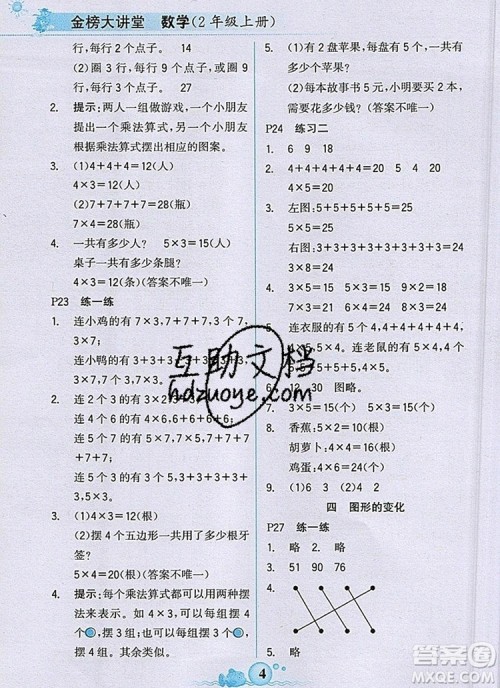 金榜大讲堂 数学(2年级上册)
行,每行2个点子。 14
(2)圈9个点子,可以每行9个点子,圈
行,每行9个点子。 27
2. 提示:两人一组做游戏,一个小朋友
提出一个乘法算式,另一个小朋友
根据乘法算式摆出相应的图案。
3. (1)4+4+4=12(人)
4×3=12(人)
(2)7+7+7+7=28(瓶)
7×4=28(瓶)
4. 一共有多少人? 5×3=15(人)
桌子一共有多少条腿?
4×3=12(条)(答案不唯一)
P23 练一练
1. 连小鸡的有7×3,7+7+7,3个7,
3×7;
连小鸭的有
3×3,
2. 连4个6的有
连6个4的有
连5个7的有
连5个3的有
3×5。
3. (1)4×3=12(根)
(2)摆4个五边形一共用了多少根牙
签?
5×4=20(根)(答案不唯一)
4. 提示:每个乘法算式都可以有两种摆
法来表示。如4×3,可以每组摆4
个,摆3组;也可以每组摆3个,
摆4组。其余类似。
5. (1)有2盘苹果,每盘有3个,一共有
多少个苹果?
(2)每本故事书5元,小明要买2本,
需要花多少钱?(答案不唯一)
P24 练习二
1. 6 9 18
2. 4+4+4+4+4=20
4×5=20
3. 左图:5+5+5+5+5=25
5×5=25
右图:3+3+3+3+3+3+3+3=24
3×8=24
4. 3×5=15 5×3=15 9×2=18
2×9=18 6×4=24 4×6=24
5. 连衣服的有5个4,4+4+4+4+4,
4×5。连老鼠的有
6. 12 30 图略。
7. 3×5=15(个)
8. 香蕉:5×2=10(个)
胡萝卜:4×4=16(个)
鸡蛋:4×2=8(个)
9. (1)6 (2)3 4 2
四 图形的变化
P27 练一练
1. 略 2. 略
3. 51 90 76
4.
5. 略
互助文档
hdzuoye.com
4
答案圈
MXQE.COM